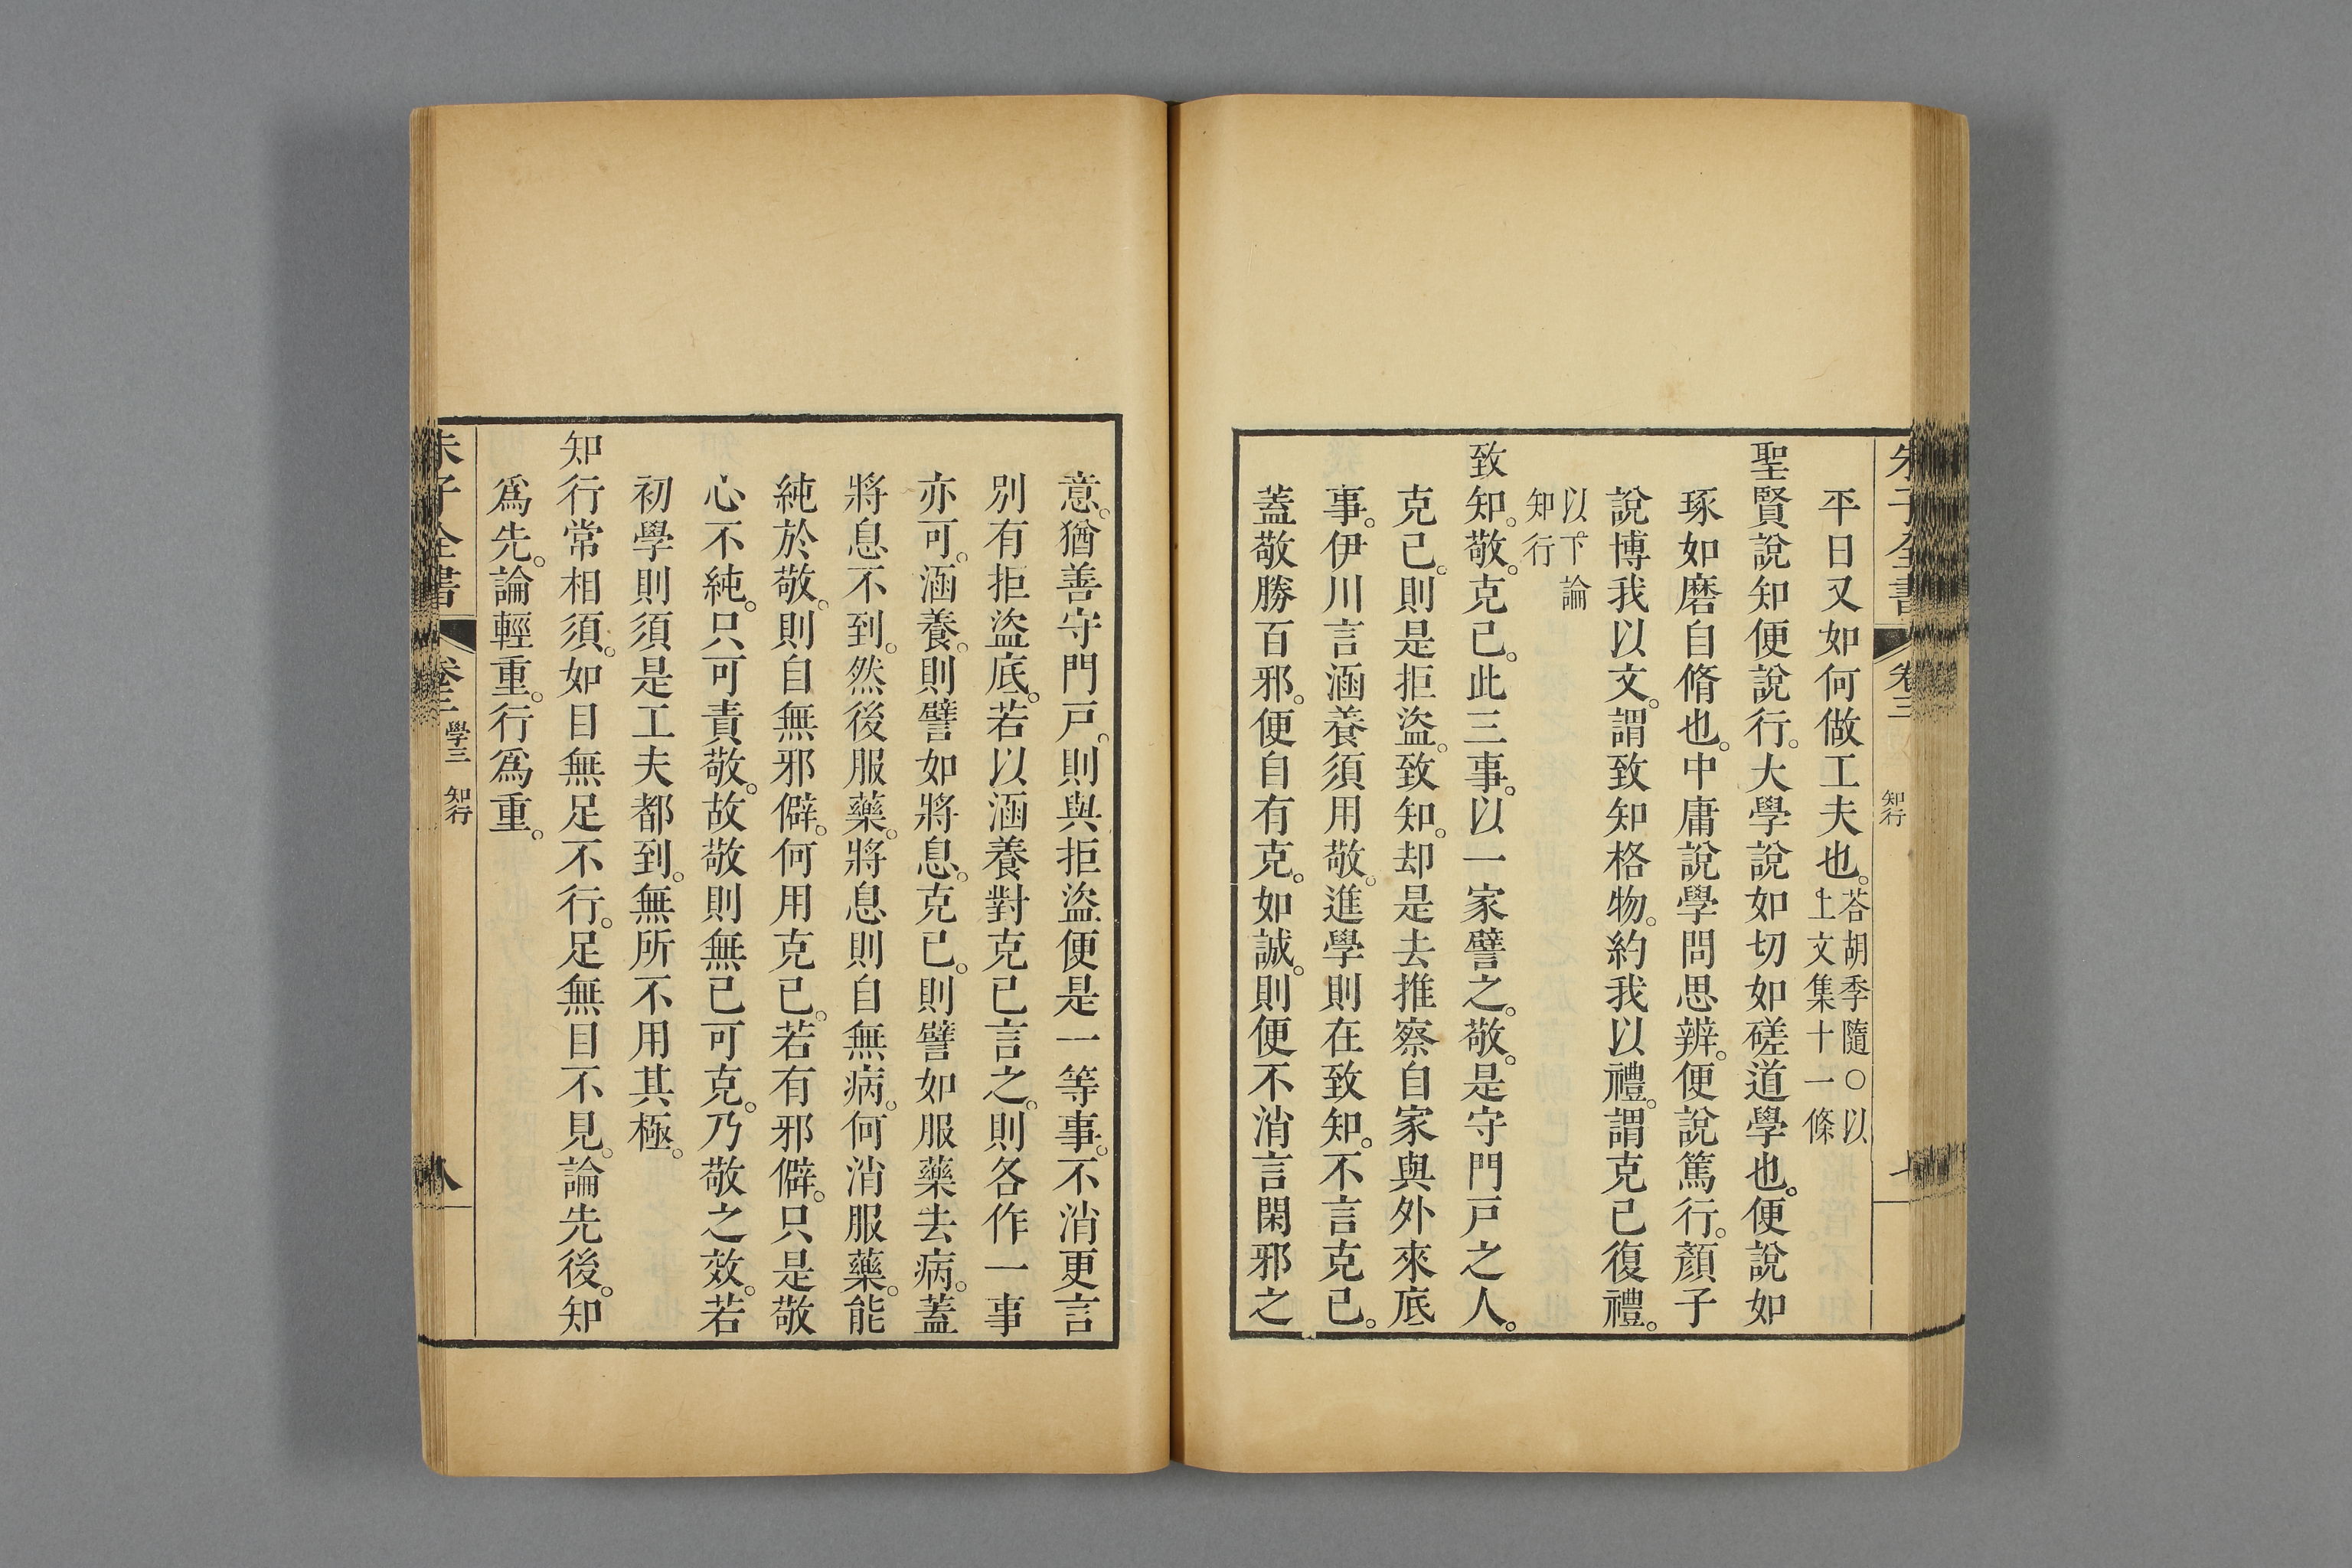 朱子全書 卷三 知行 七
平日又如何做工夫也。荅胡季隨○以
上文集十一條
聖賢說知便說行。大學說如切如磋道學也。便說如
琢如磨自脩也。中庸說學問思辨。便說篤行。顏子
說博我以文。謂致知格物。約我以禮。謂克已復禮。
以下論
知行
致知。敬。克已。此三事。以一家譬之。敬。是守門戸之人。
克已。則是拒盜。致知。却是去推察自家與外來底
事。伊川言涵養須用敬。進學則在致知。不言克已。
蓋敬勝百邪。便自有克。如誠。則便不消言閑邪之
意。猶善守門戸。則與拒盜便是一等事。不消更言
別有拒盜底。若以涵養對克已言之。則各作一事
亦可。涵養。則譬如將息。克已。則譬如服藥去病。蓋
將息不到。然後服藥。將息則自無病。何消服藥。能
純於敬。則自無邪僻。何用克已。若有邪僻。只是敬
心不純。只可責敬。故敬則無已可克。乃敬之效。若
初學則須是工夫都到。無所不用其極。
知行常相須。如目無足不行。足無目不見。論先後。知
爲先。論輕重。行爲重。
朱子全書 卷三 學三 知行 八